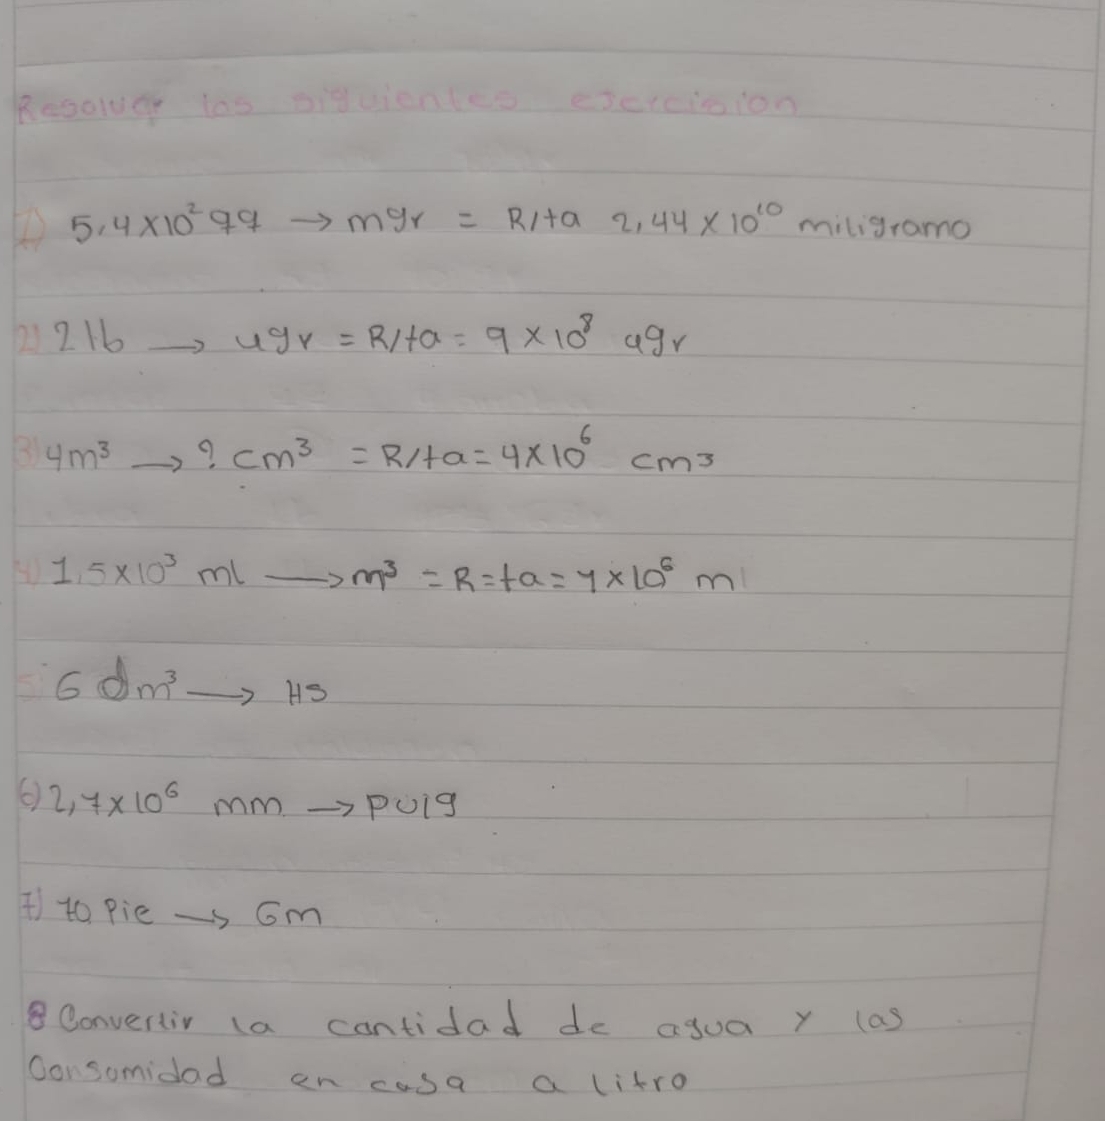 Resolver las siguientes ejercicion
1) 5,4x10² qq → mgr = R/ta 2,44 x 10¹⁰ miligramo
2) 2 lb → ugr = R/ta = 9 x 10⁸ ugr
3) 4m³ → ? cm³ = R/ta = 4x10⁶ cm3
4) 1,5x10³ ml → m³ = R=ta = 4x10⁶ ml
5) 6 dm³ → HS
6) 2,7x10⁶ mm → pulg
7) 70 Pie → Gm
8 Convertir la cantidad de agua y las
Consumidad en casa a litro